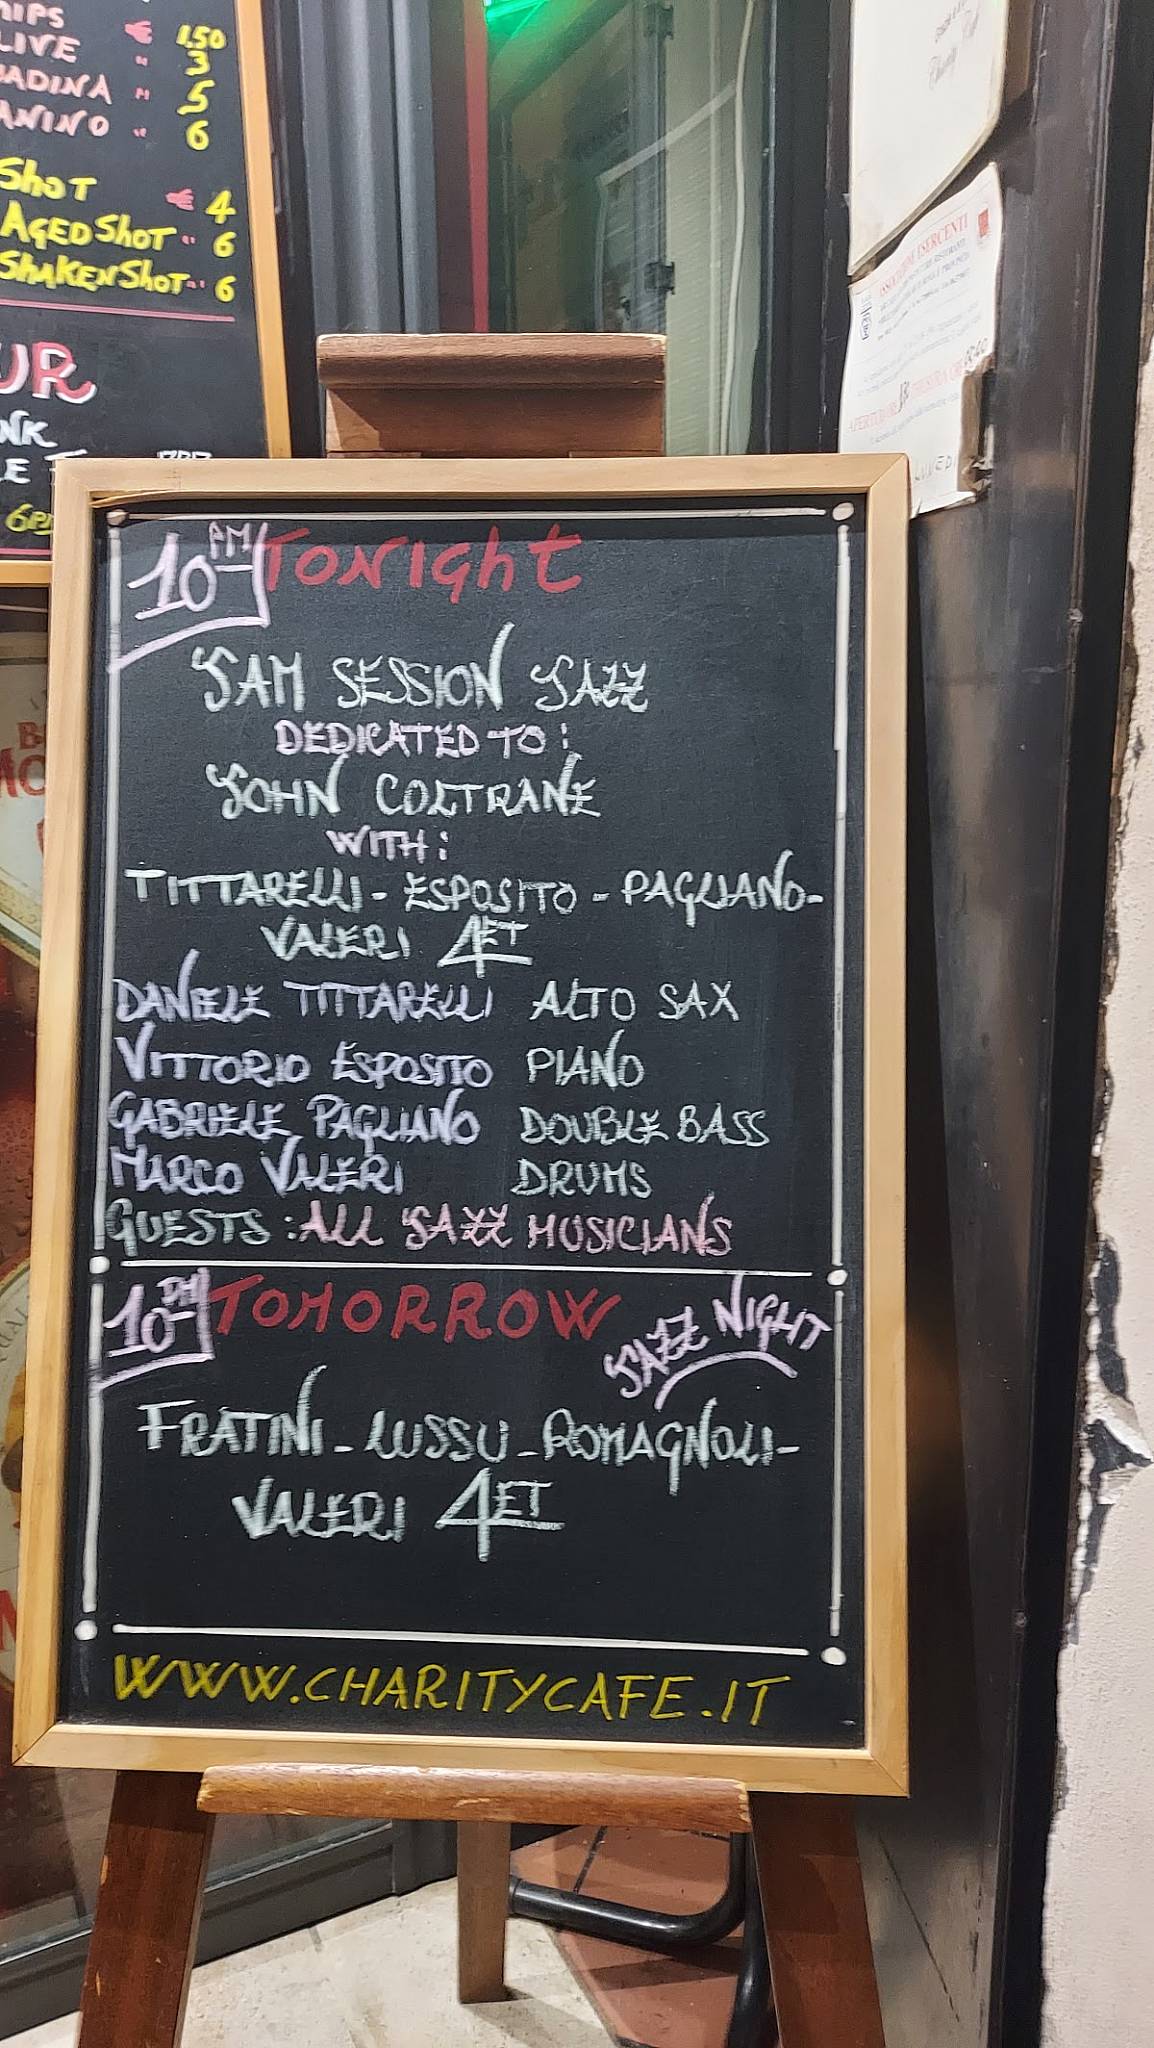 LIVE " 3
" 5
" 6
SHOT € 4
AGED SHOT " 6
SHAKEN SHOT " 6
10 PM TONIGHT
JAM SESSION JAZZ
DEDICATED TO:
JOHN COLTRANE
WITH:
TITTARELLI - ESPOSITO - PAGLIANO -
VALERI 4ET
DANIELE TITTARELLI ALTO SAX
VITTORIO ESPOSITO PIANO
GABRIELE PAGLIANO DOUBLE BASS
MARCO VALERI DRUMS
GUESTS: ALL JAZZ MUSICIANS
10 PM TOMORROW JAZZ NIGHT
FRATINI - LUSSU - ROMAGNOLI -
VALERI 4ET
WWW.CHARITYCAFE.IT